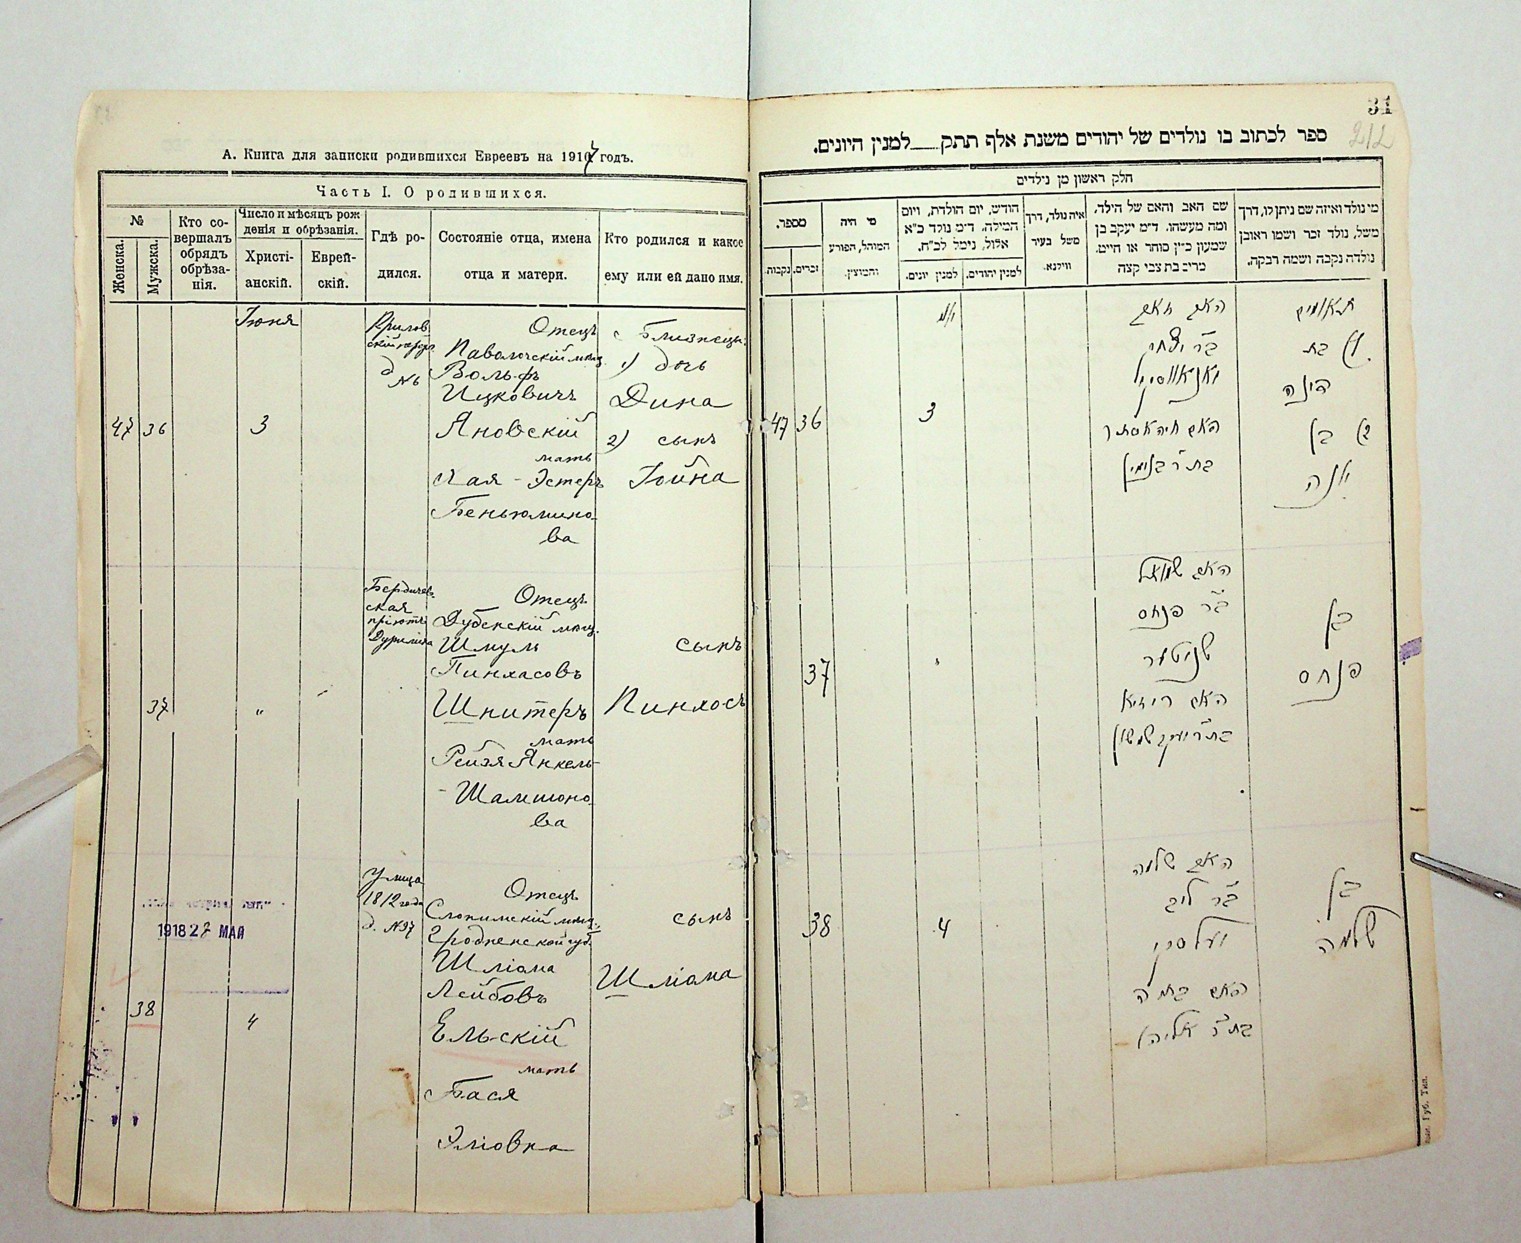 А. Книга для записки родившихся Евреевъ на 1917 годъ.
Часть I. О родившихся.
№
Женска.
Мужска.
Кто со-
вершалъ
обрядъ
обрѣза-
нія.
Число и мѣсяцъ рож
денія и обрѣзанія.
Христі-
анскій.
Еврей-
скій.
Гдѣ ро-
дился.
Состояніе отца, имена
отца и матери.
Кто родился и какое
ему или ей дано имя.
47
36
Іюня
3
д №6
Отецъ
Паволочскій мѣщ.
Вольфъ
Ицковичъ
Яновскій
мать
Хая-Эстеръ
Беньюмино-
ва
Близнецы:
1) дочь
Дина
2) сынъ
Іойна
37
„
Бердичев-
ская
пріютъ
Отецъ
Дубенскій мѣщ.
Шмуль
Пинхасовъ
Шнитеръ
мать
Рейзя Янкель-
Шамшоно-
ва
сынъ
Пинхосъ
1918 27 МАЙ
38
4
Улица
1812 года
д. №37
Отецъ
Слонимскій мѣщ.
Гродненской губ.
Шліома
Лейбовъ
Ельскій
мать
Бася
Эліовна
сынъ
Шліома
31
212
ספר לכתוב בו נולדים של יהודים משנת אלף תתק למנין היונים.
חלק ראשון מן נילדים
מספר.
נקבות
זכרים.
מי היה
המוהל, הפורע
והמוצץ.
הודש, יום הולדת, ויום
המילה. ד״מ נולד כ״א
אלול, נימל לכ״ח.
למנין יונים.
למנין יהודים.
איה נולד, דרך
משל בעיר
ווילנא.
שם האב והאם של הילד,
ומה מעשהו. ד״מ יעקב בן
שמעון כ״ץ סוחר או חייט.
מרים בת צבי קצה
מי נולד ואיזה שם ניתן לו, דרך
משל, נולד זכר ושמו ראובן
נולדה נקבה ושמה רבקה.
47
36
3
האב וואלף
בר יצחק
יאנאווסקי
האם חיה אסתר
בת ר׳ בנימין
תאומים
1) בת
דינה
2) בן
יונה
37
האב שמואל
בר פנחס
שניטער
האם רייזא
בת ר׳ יעקב שמשון
בן
פנחס
38
4
האב שלמה
בר ליב
יעלסקי
האם באסיה
בת ר׳ אליהו
בן
שלמה